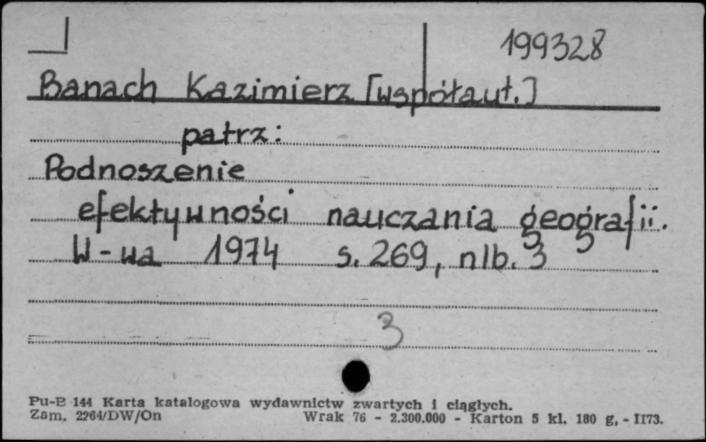 199328
Banach Kazimierz [współaut.]
patrz:
Podnoszenie
efektywności nauczania geografii.
W-wa 1974 s. 269, nlb. 3
3
Pu-B 144 Karta katalogowa wydawnictw zwartych i ciągłych.
Zam. 2264/DW/On Wrak 76 - 2.300.000 - Karton 5 kl. 180 g. - II73.